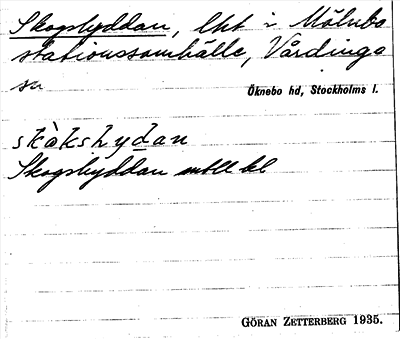 Skogshyddan, lht i Mölnbo
stationssamhälle, Vårdinge
sn
Öknebo hd, Stockholms l.
skàkshydan
Skogshyddan mtll bl
GÖRAN ZETTERBERG 1935.